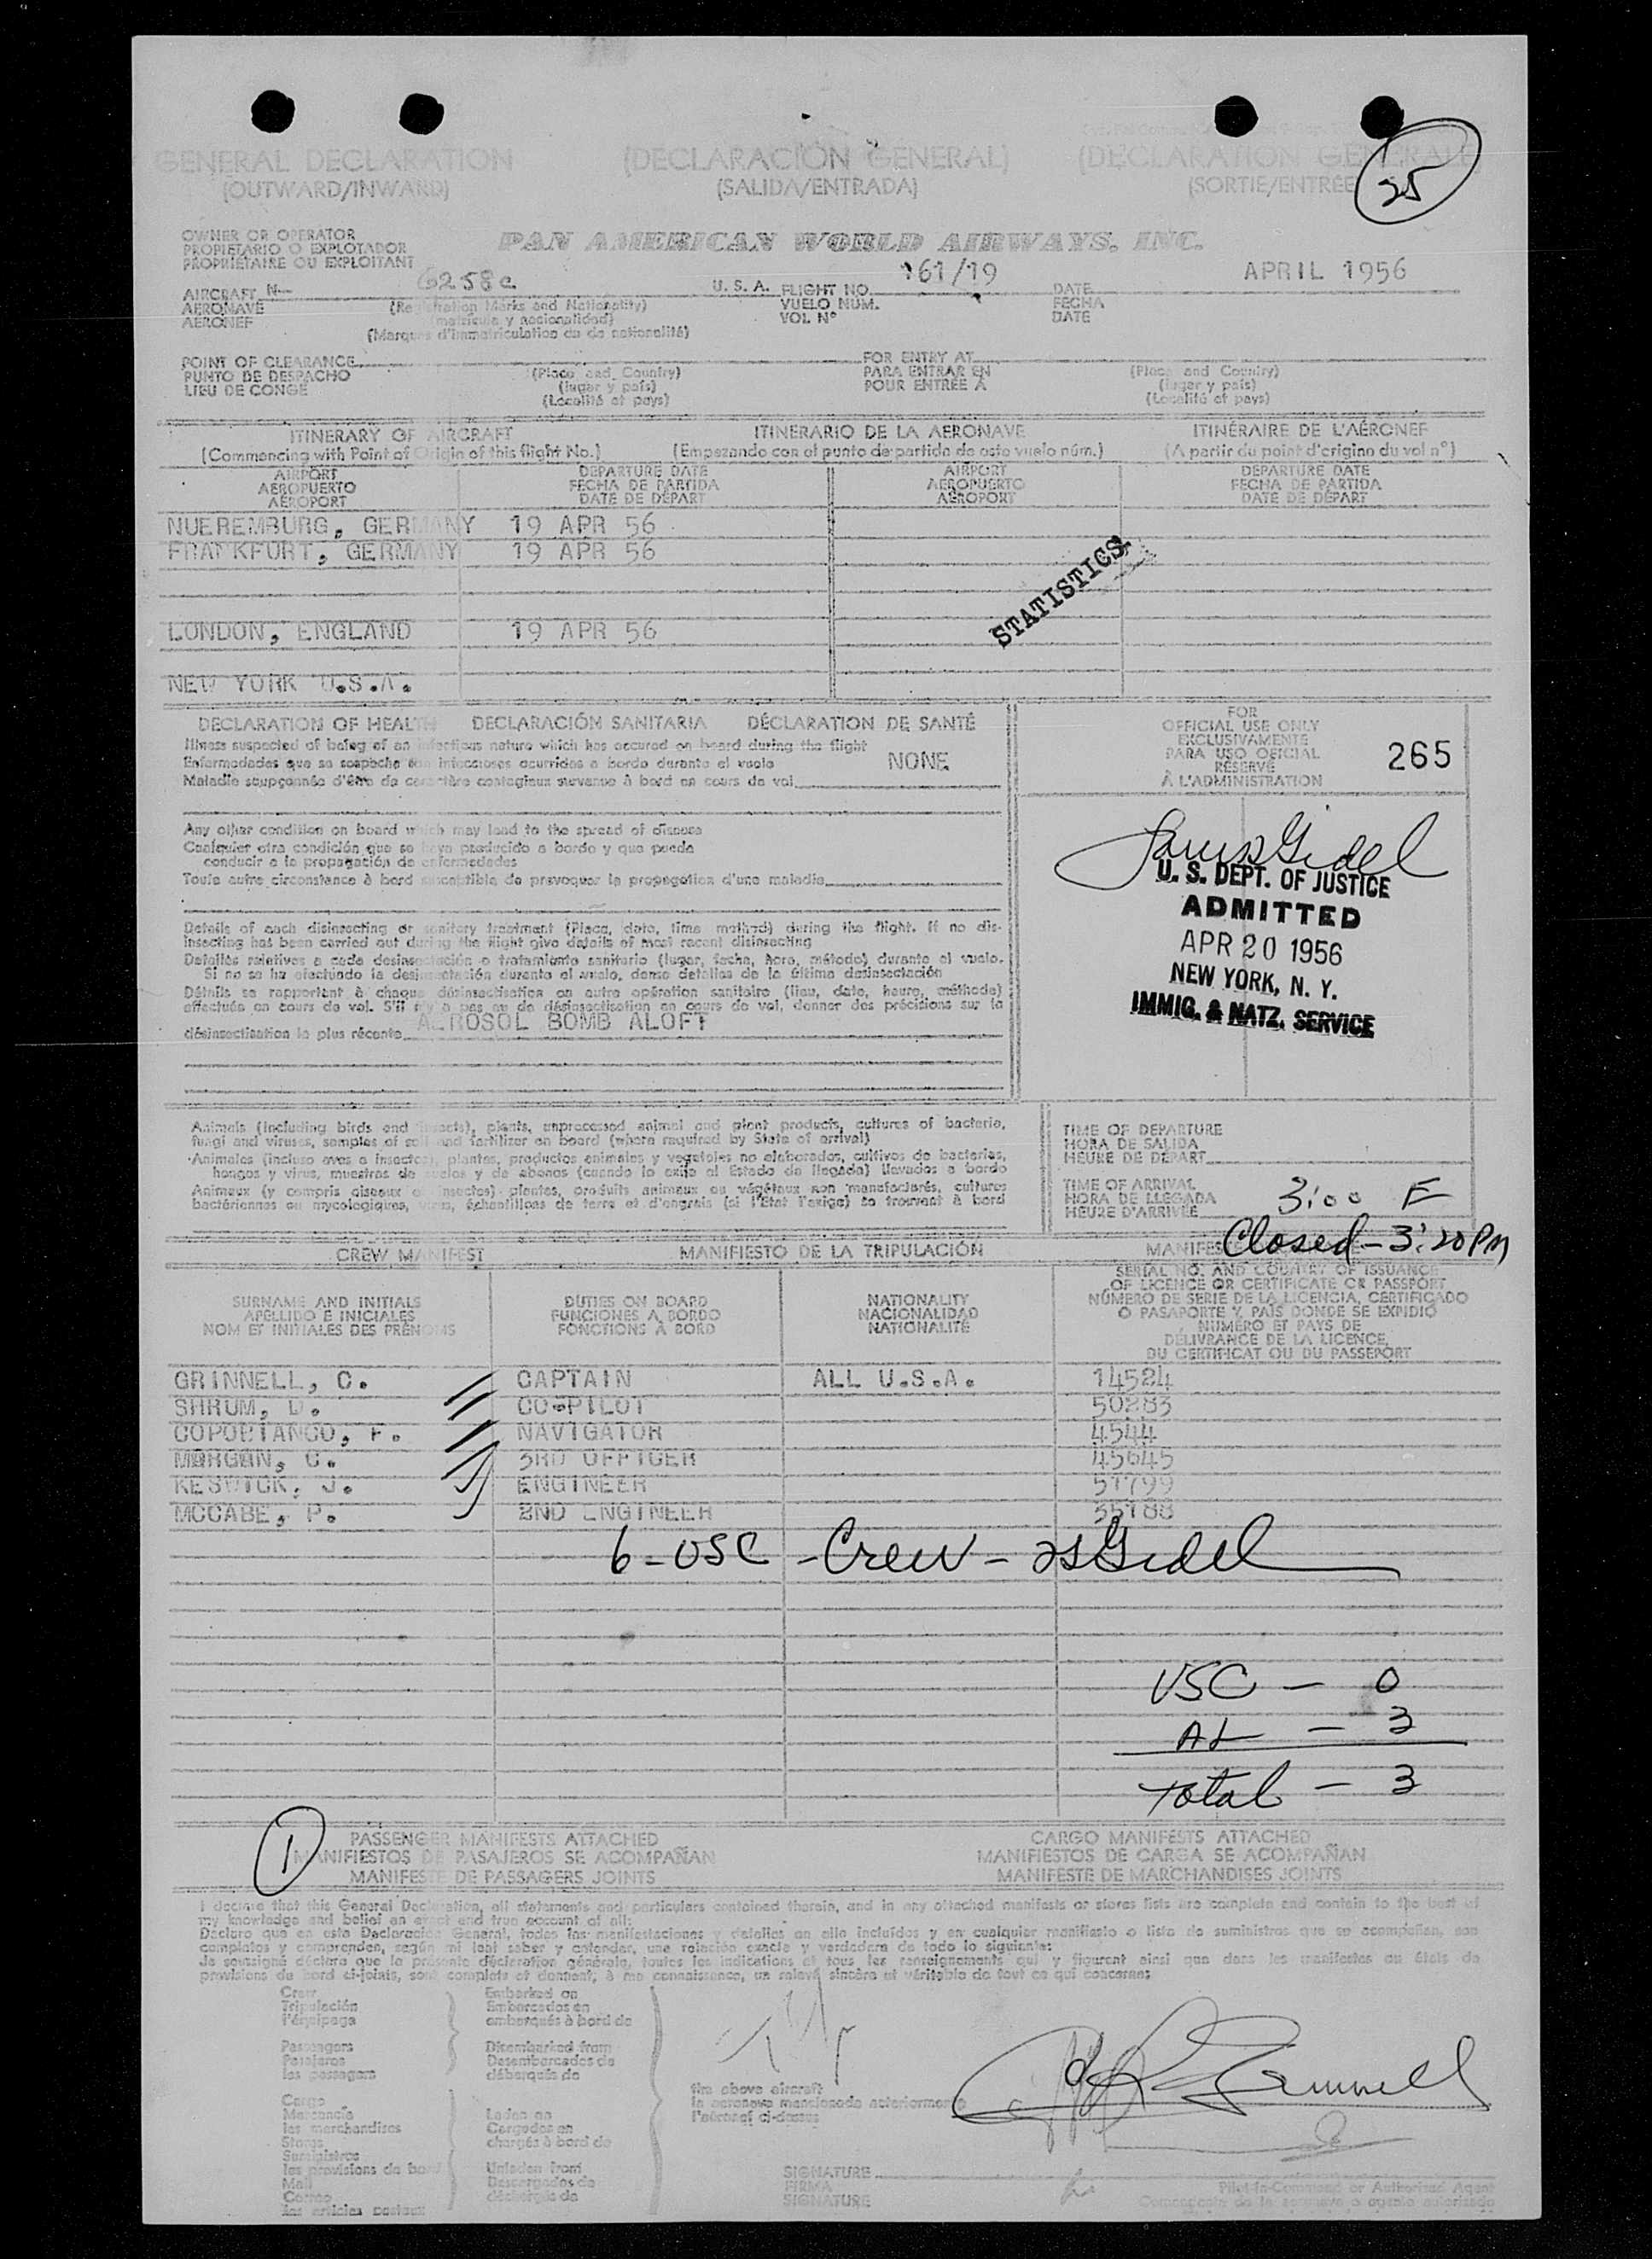 GENERAL DECLARATION (DECLARACIÓN GENERAL) (DECLARATION GENERALE)
(OUTWARD/INWARD) (SALIDA/ENTRADA) (SORTIE/ENTRÉE
25
OWNER OR OPERATOR
PROPIETARIO O EXPLOTADOR
PROPRIÉTAIRE OU EXPLOITANT
PAN AMERICAN WORLD AIRWAYS, INC.
AIRCRAFT N 6258c U. S. A. FLIGHT NO. 161/19 DATE APRIL 1956
AERONAVE (Registration Marks and Nationality) VUELO NÚM. FECHA
AERONEF (matrícula y nacionalidad) VOL Nº DATE
(Marques d'immatriculation ou de nationalité)
POINT OF CLEARANCE FOR ENTRY AT
PUNTO DE DESPACHO (Place and Country) PARA ENTRAR EN (Place and Country)
LIEU DE CONGÉ (lugar y país) POUR ENTRÉE À (lugar y país)
(Localité et pays) (Localité et pays)
ITINERARY OF AIRCRAFT ITINERARIO DE LA AERONAVE ITINÉRAIRE DE L'AÉRONEF
(Commencing with Point of Origin of this flight No.) (Empezando con el punto de partida de este vuelo núm.) (A partir du point d'origine du vol nº)
AIRPORT DEPARTURE DATE AIRPORT DEPARTURE DATE
AEROPUERTO FECHA DE PARTIDA AEROPUERTO FECHA DE PARTIDA
AÉROPORT DATE DE DÉPART AÉROPORT DATE DE DÉPART
NUEREMBURG, GERMANY 19 APR 56
FRANKFURT, GERMANY 19 APR 56
STATISTICS
LONDON, ENGLAND 19 APR 56
NEW YORK U.S.A.
DECLARATION OF HEALTH DECLARACIÓN SANITARIA DÉCLARATION DE SANTÉ
Illness suspected of being of an infectious nature which has occured on board during the flight
Enfermedades que se sospecha son infecciosas ocurridas a bordo durante el vuelo NONE
Maladie soupçonnée d'être de caractère contagieux survenue à bord en cours de vol
FOR
OFFICIAL USE ONLY
EXCLUSIVAMENTE
PARA USO OFICIAL
RÉSERVÉ
À L'ADMINISTRATION
265
Any other condition on board which may lead to the spread of disease
Cualquier otra condición que se haya producido a bordo y que pueda
conducir a la propagación de enfermedades
Toute autre circonstance à bord susceptible de provoquer la propagation d'une maladie
U. S. DEPT. OF JUSTICE
ADMITTED
APR 20 1956
NEW YORK, N. Y.
IMMIG. & NATZ. SERVICE
Details of each disinsecting or sanitary treatment (Place, date, time method) during the flight. If no dis-
insecting has been carried out during the flight give details of most recent disinsecting
Detalles relativos a cada desinsectación o tratamiento sanitario (lugar, fecha, hora, método) durante el vuelo.
Si no se ha efectuado la desinsectación durante el vuelo, dense detalles de la última desinsectación
Détails se rapportant à chaque désinsectisation ou autre opération sanitaire (lieu, date, heure, méthode)
effectués en cours de vol. S'il n'y a pas eu de désinsectisation en cours de vol, donner des précisions sur la
désinsectisation la plus récente AEROSOL BOMB ALOFT
Animals (including birds and insects), plants, unprocessed animal and plant products, cultures of bacteria,
fungi and viruses, samples of soil and fertilizer on board (where required by State of arrival)
Animales (incluso aves e insectos), plantas, productos animales y vegetales no elaborados, cultivos de bacterias,
hongos y virus, muestras de suelos y de abonos (cuando lo exija el Estado de llegada) llevados a bordo
Animaux (y compris oiseaux et insectes) plantes, produits animaux ou végétaux non manufacturés, cultures
bactériennes ou mycologiques, virus, échantillons de terre et d'engrais (si l'État l'exige) se trouvant à bord
TIME OF DEPARTURE
HORA DE SALIDA
HEURE DE DÉPART
TIME OF ARRIVAL
HORA DE LLEGADA 3:00 F
HEURE D'ARRIVÉE
Closed - 3:20 PM
CREW MANIFEST MANIFIESTO DE LA TRIPULACIÓN
SURNAME AND INITIALS
APELLIDO E INICIALES
NOM ET INITIALES DES PRÉNOMS
DUTIES ON BOARD
FUNCIONES A BORDO
FONCTIONS À BORD
NATIONALITY
NACIONALIDAD
NATIONALITÉ
SERIAL NO. AND COUNTRY OF ISSUANCE
OF LICENCE OR CERTIFICATE OR PASSPORT
NÚMERO DE SERIE DE LA LICENCIA, CERTIFICADO
O PASAPORTE Y PAÍS DONDE SE EXPIDIÓ
NUMÉRO ET PAYS DE
DÉLIVRANCE DE LA LICENCE,
DU CERTIFICAT OU DU PASSEPORT
GRINNELL, C. CAPTAIN ALL U.S.A. 14524
SHRUM, D. CO-PILOT 50283
COPOBIANCO, F. NAVIGATOR 4544
MORGAN, C. 3RD OFFICER 45645
KESWICK, J. ENGINEER 57799
MCCABE, P. 2ND ENGINEER 35188
6-USC - Crew -
USC - 0
AL - 3
Total - 3
1
PASSENGER MANIFESTS ATTACHED CARGO MANIFESTS ATTACHED
MANIFIESTOS DE PASAJEROS SE ACOMPAÑAN MANIFIESTOS DE CARGA SE ACOMPAÑAN
MANIFESTE DE PASSAGERS JOINTS MANIFESTE DE MARCHANDISES JOINTS
I declare that this General Declaration, all statements and particulars contained therein, and in any attached manifests or stores lists are complete and contain to the best of
my knowledge and belief an exact and true account of all:
Declaro que en esta Declaración General, todas las manifestaciones y detalles en ella incluídos y en cualquier manifiesto o lista de suministros que se acompañan, son
completos y comprenden, según mi leal saber y entender, una relación exacta y verdadera de todo lo siguiente:
Je soussigné déclare que la présente déclaration générale, toutes les indications et tous les renseignements qui y figurent ainsi que dans les manifestes ou états de
provisions de bord ci-joints, sont complets et donnent, à ma connaissance, un relevé sincère et véritable de tout ce qui concerne:
Crew
Tripulación
l'équipage
Embarked on
Embarcados en
embarqués à bord de
Passengers
Pasajeros
les passagers
Disembarked from
Desembarcados de
débarqués de
the above aircraft
la aeronave mencionada anteriormente
l'aéronef ci-dessus
Cargo
Mercancía
les marchandises
Stores
Suministros
les provisions de bord
Mail
Correo
les articles postaux
Laden on
Cargados en
chargés à bord de
Unladen from
Descargados de
déchargés de
SIGNATURE
FIRMA
SIGNATURE
Pilot-in-Command or Authorized Agent
Comandante de la aeronave o agente autorizado